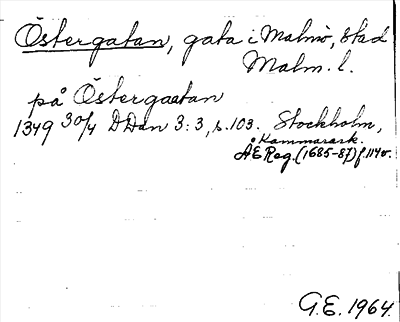 Östergatan, gata i Malmö, stad
Malm. l.
på Östergaatan
1349 30/4 DDan 3:3, s. 103. Stockholm,
Kammarark.
ÅE Reg. (1685-87) f. 114v.
G.E. 1964.